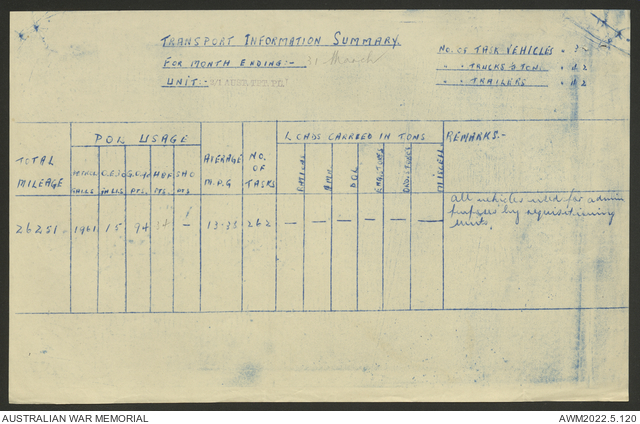 TRANSPORT INFORMATION SUMMARY.
FOR MONTH ENDING:- 31 March
UNIT:-
NO. OF TASK VEHICLES
" " TRUCKS
" " TRAILERS
TOTAL MILEAGE
POL USAGE
AVERAGE M.P.G
NO. OF TASKS
LOADS CARRIED IN TONS
REMARKS.-
GALLS
PTS.
RATIONS
AMN
POL
MISCELL
26251 1961 15 94 — 13-33 262 — — — — — —
All vehicles used for admin
purposes by requisitioning
units.
AUSTRALIAN WAR MEMORIAL
AWM2022.5.120